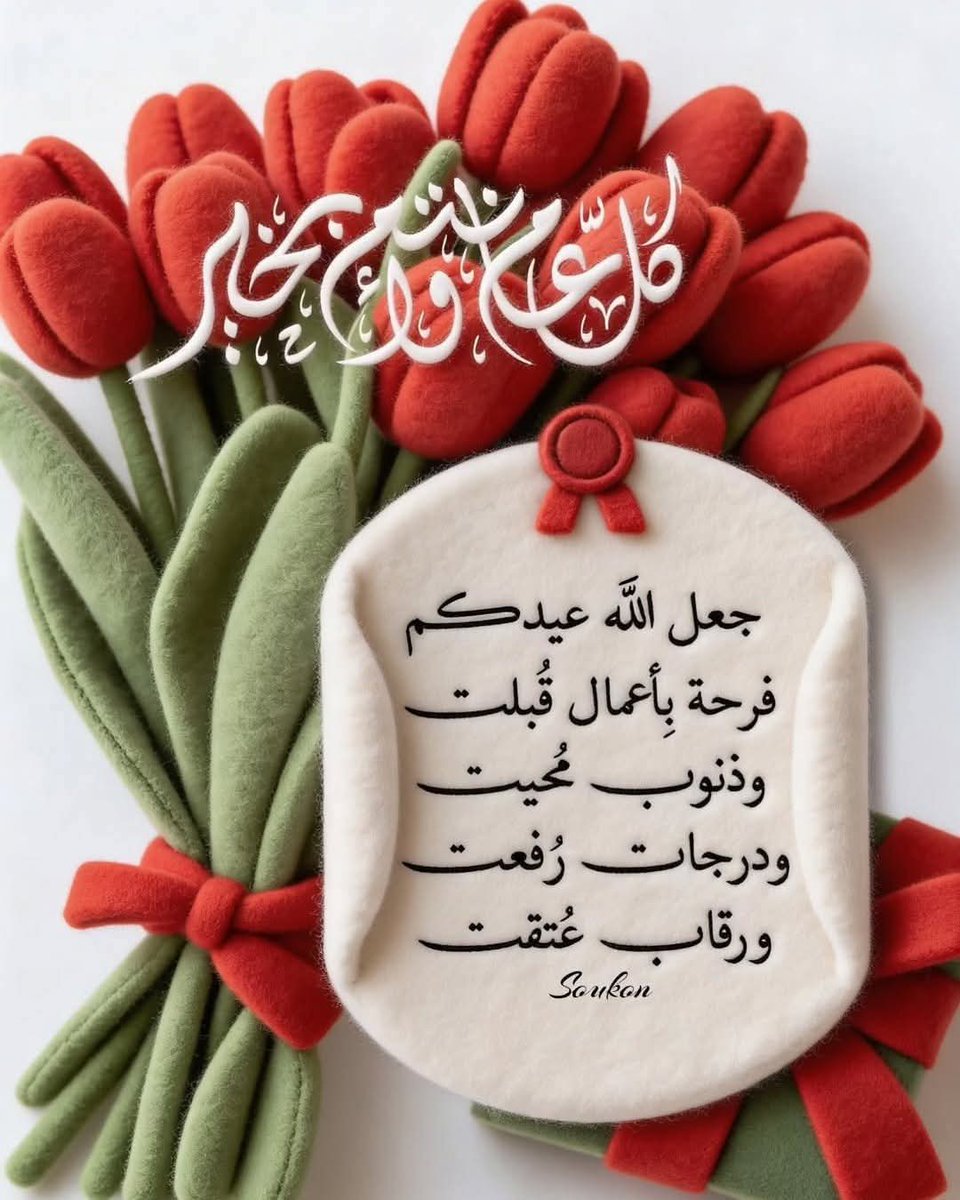 كل عام وأنتم بخير
جعل اللَّه عيدكم
فرحة بِأعمال قُبلت
وذنوب مُحيت
ودرجات رُفعت
ورقاب عُتقت
Soukon